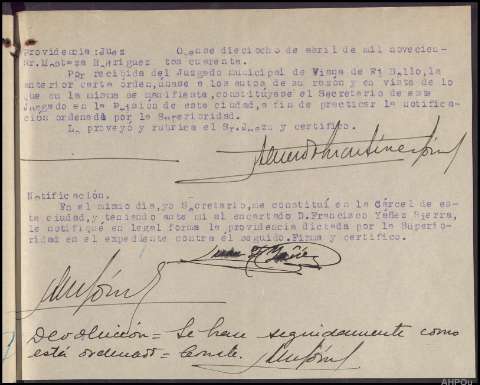 Providencia:Juez Orense dieciocho de abril de mil novecien-
Sr. Rodriguez tos cuarenta.
Por recibida del Juzgado Municipal de Viana de El Bollo, la
anterior carta orden, únase a los autos de su razón y en vista de lo
que en la misma se manifiesta, constituyase el Secretario de este
Juzgado en la Prisión de esta ciudad, a fin de practicar la notifica
ción ordenada por la Superioridad.
Lo proveyó y rubrica el Sr.Juez y certifico.
Notificación.
En el mismo dia, yo Secretario, me constituí en la Cárcel de es-
ta ciudad, y teniendo ante mi al encartado D.Francisco Yáñez Sierra,
le notifiqué en legal forma la providencia dictada por la Superio-
ridad en el expediente contra él seguido.Firma y certifico.
Devolución = Se hace seguidamente como
está ordenado = Conste.
AHPOu